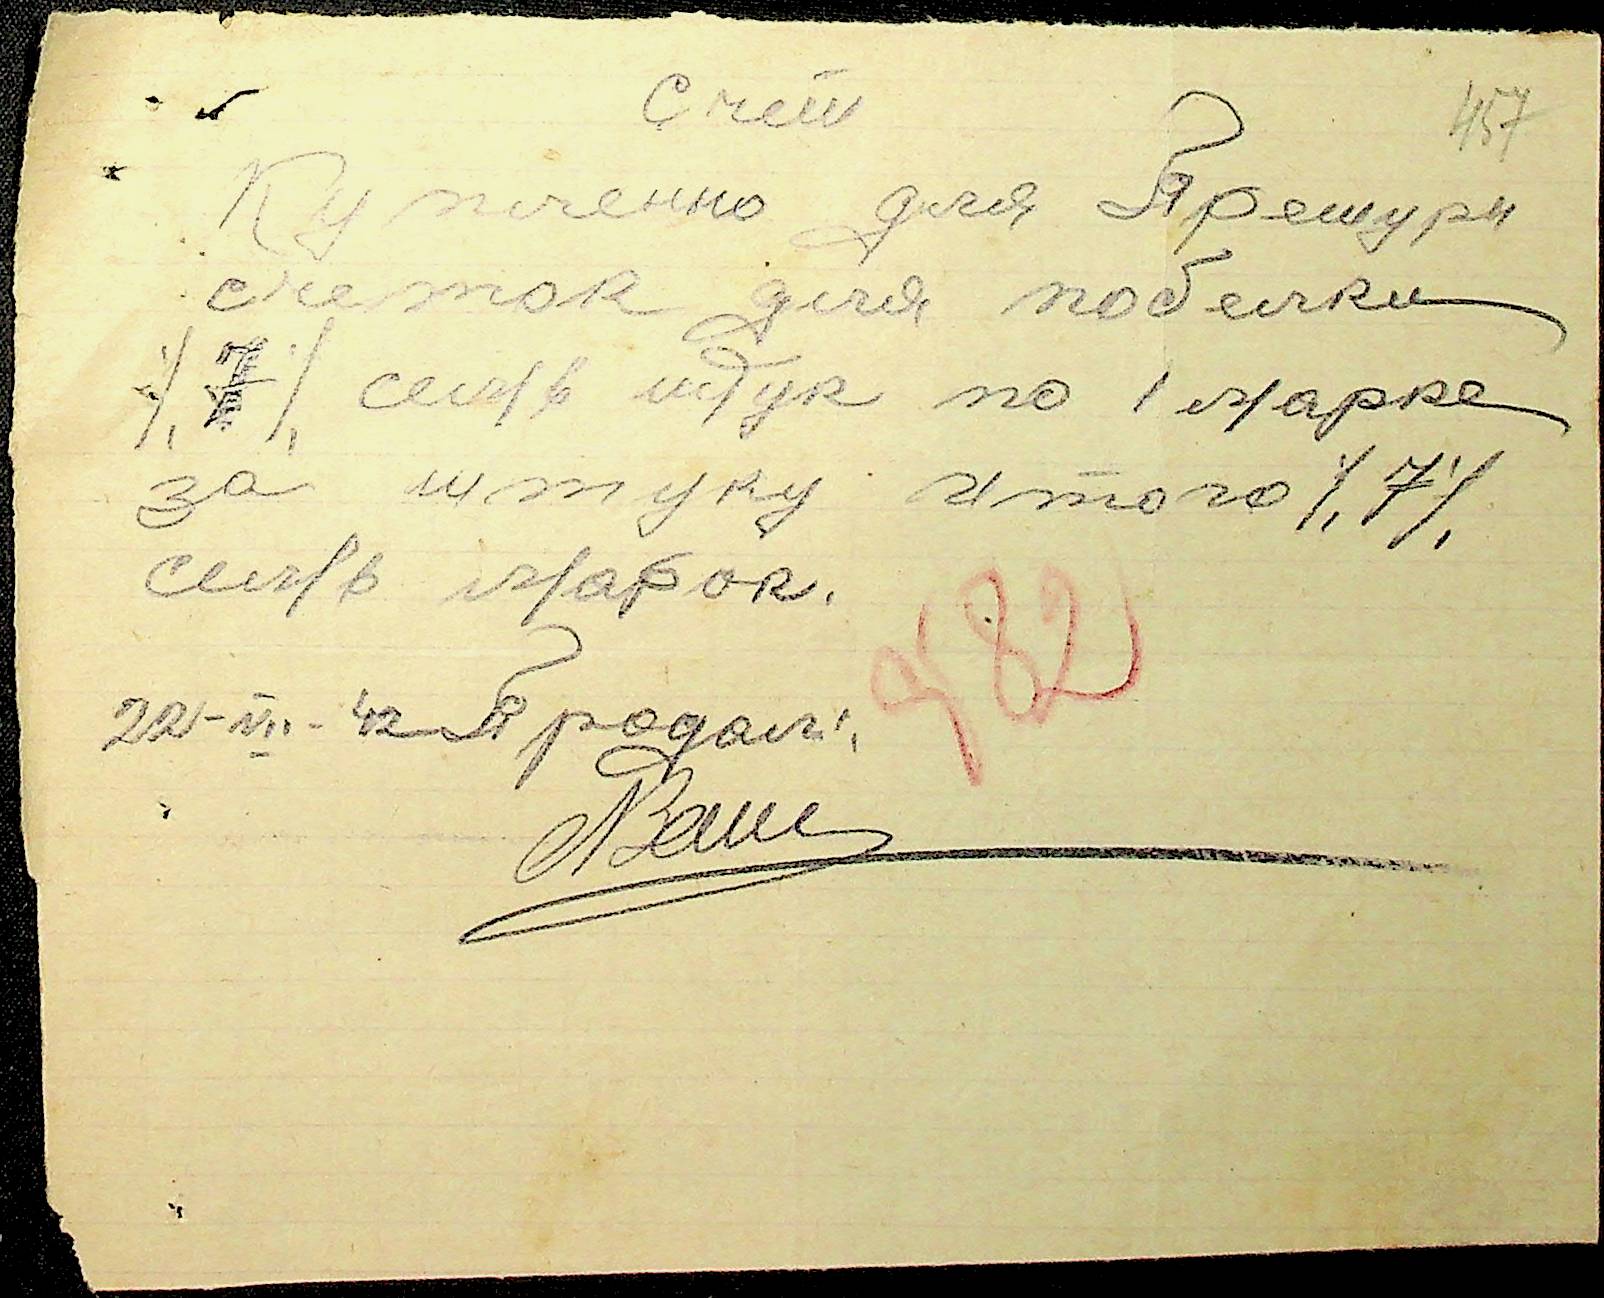 Счет
457
Купленно для Премури
счеток для побелки
/7/ семь штук по 1 марке
за штуку итого /7/
семь марок.
982
22-VII-42 Продал: